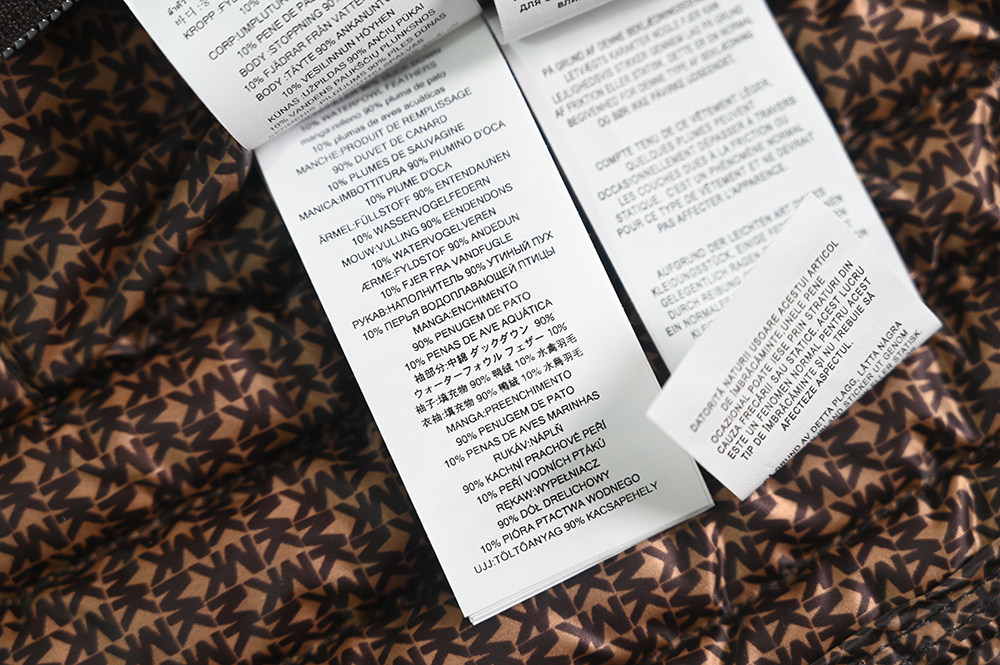 KROPP :FYL
CORP:UMPLUTUR
10% PENE DE PAS
BODY :STOPPNING 90%
10% FJÄDRAR FRÅN VATTEN
BODY :TÄYTE 90% ANKANUNT
10% VESILINNUN HÖYHEN
KŪNAS :UŽPILDAS 90% ANČIŲ PŪKAI
10% VANDENS PAUKŠČIŲ PLUNKSNOS
10% WATERFOWL FEATHERS
manga relleno 90% pluma de pato
10% plumas de aves acuáticas
MANCHE:PRODUIT DE REMPLISSAGE
90% DUVET DE CANARD
10% PLUMES DE SAUVAGINE
MANICA:IMBOTTITURA 90% PIUMINO D'OCA
10% PIUME D'OCA
ÄRMEL:FÜLLSTOFF 90% ENTENDAUNEN
10% WASSERVOGELFEDERN
MOUW:VULLING 90% EENDENDONS
10% WATERVOGELVEREN
ÆRME:FYLDSTOF 90% ANDEDUN
10% FJER FRA VANDFUGLE
РУКАВ:НАПОЛНИТЕЛЬ 90% УТИНЫЙ ПУХ
10% ПЕРЬЯ ВОДОПЛАВАЮЩЕЙ ПТИЦЫ
MANGA:ENCHIMENTO
90% PENUGEM DE PATO
10% PENAS DE AVE AQUÁTICA
袖部分:中綿 ダックダウン 90%
ウォーターフォウル フェザー 10%
袖子:填充物 90% 鸭绒 10% 水禽羽毛
衣袖:填充物 90% 鴨絨 10% 水鳥羽毛
MANGA:PREENCHIMENTO
90% PENUGEM DE PATO
10% PENAS DE AVES MARINHAS
RUKÁV:NÁPLŇ
90% KACHNÍ PRACHOVÉ PEŘÍ
10% PEŘÍ VODNÍCH PTÁKŮ
RĘKAW:WYPEŁNIACZ
90% DÓŁ DRELICHOWY
10% PIÓRA PTACTWA WODNEGO
UJJ:TÖLTŐANYAG 90% KACSAPEHELY
PÅ GRUND AF DENNE BEKLÆDNINGSGENSTANDS
LETVÆGTS KARAKTER NOGLE FJER KAN
LEJLIGHEDSVIS STIKKE UD GENNEM LAG PÅ GRUND
AF FRIKTION ELLER STATISK. DETTE ER EN NORMAL
BEGIVENHED FOR DENNE TYPE UDBEENDT
OG BØR IKKE PÅVIRKE
COMPTE TENU DE CÉ VÊTEMENT LÉGER,
QUELQUES PLUMES PEUVENT
OCCASIONNELLEMENT PASSER À TRAVERS
LES COUCHES DUES À LA FRICTION OU
STATIQUE. C'EST UN PHÉNOMÈNE NORMAL
POUR CE TYPE DE VÊTEMENT ET NE DEVRAIT
PAS AFFECTER L'APPARENCE.
AUFGRUND DER LEICHTEN ART DIESES
KLEIDUNGSSTÜCK, EINIGE FEDERN
GELEGENTLICH RAGEN
DURCH REIBUNG
EIN NORMALE
DATORITĂ NATURII USOARE ACESTUI ARTICOL
DE ÎMBRĂCĂMINTE, UNELE PENE
OCAZIONAL POATE IESE PRIN STRATURI DIN
CAUZA FRECĂRII SAU STATICE. ACEST LUCRU
ESTE UN FENOMEN NORMAL PENTRU ACEST
TIP DE ÎMBRĂCĂMINTE ȘI NU TREBUIE SĂ
AFECTEZE ASPECTUL.
GRUND AV DETTA PLAGG LÄTTA NÅGRA
STICKER UT GENOM